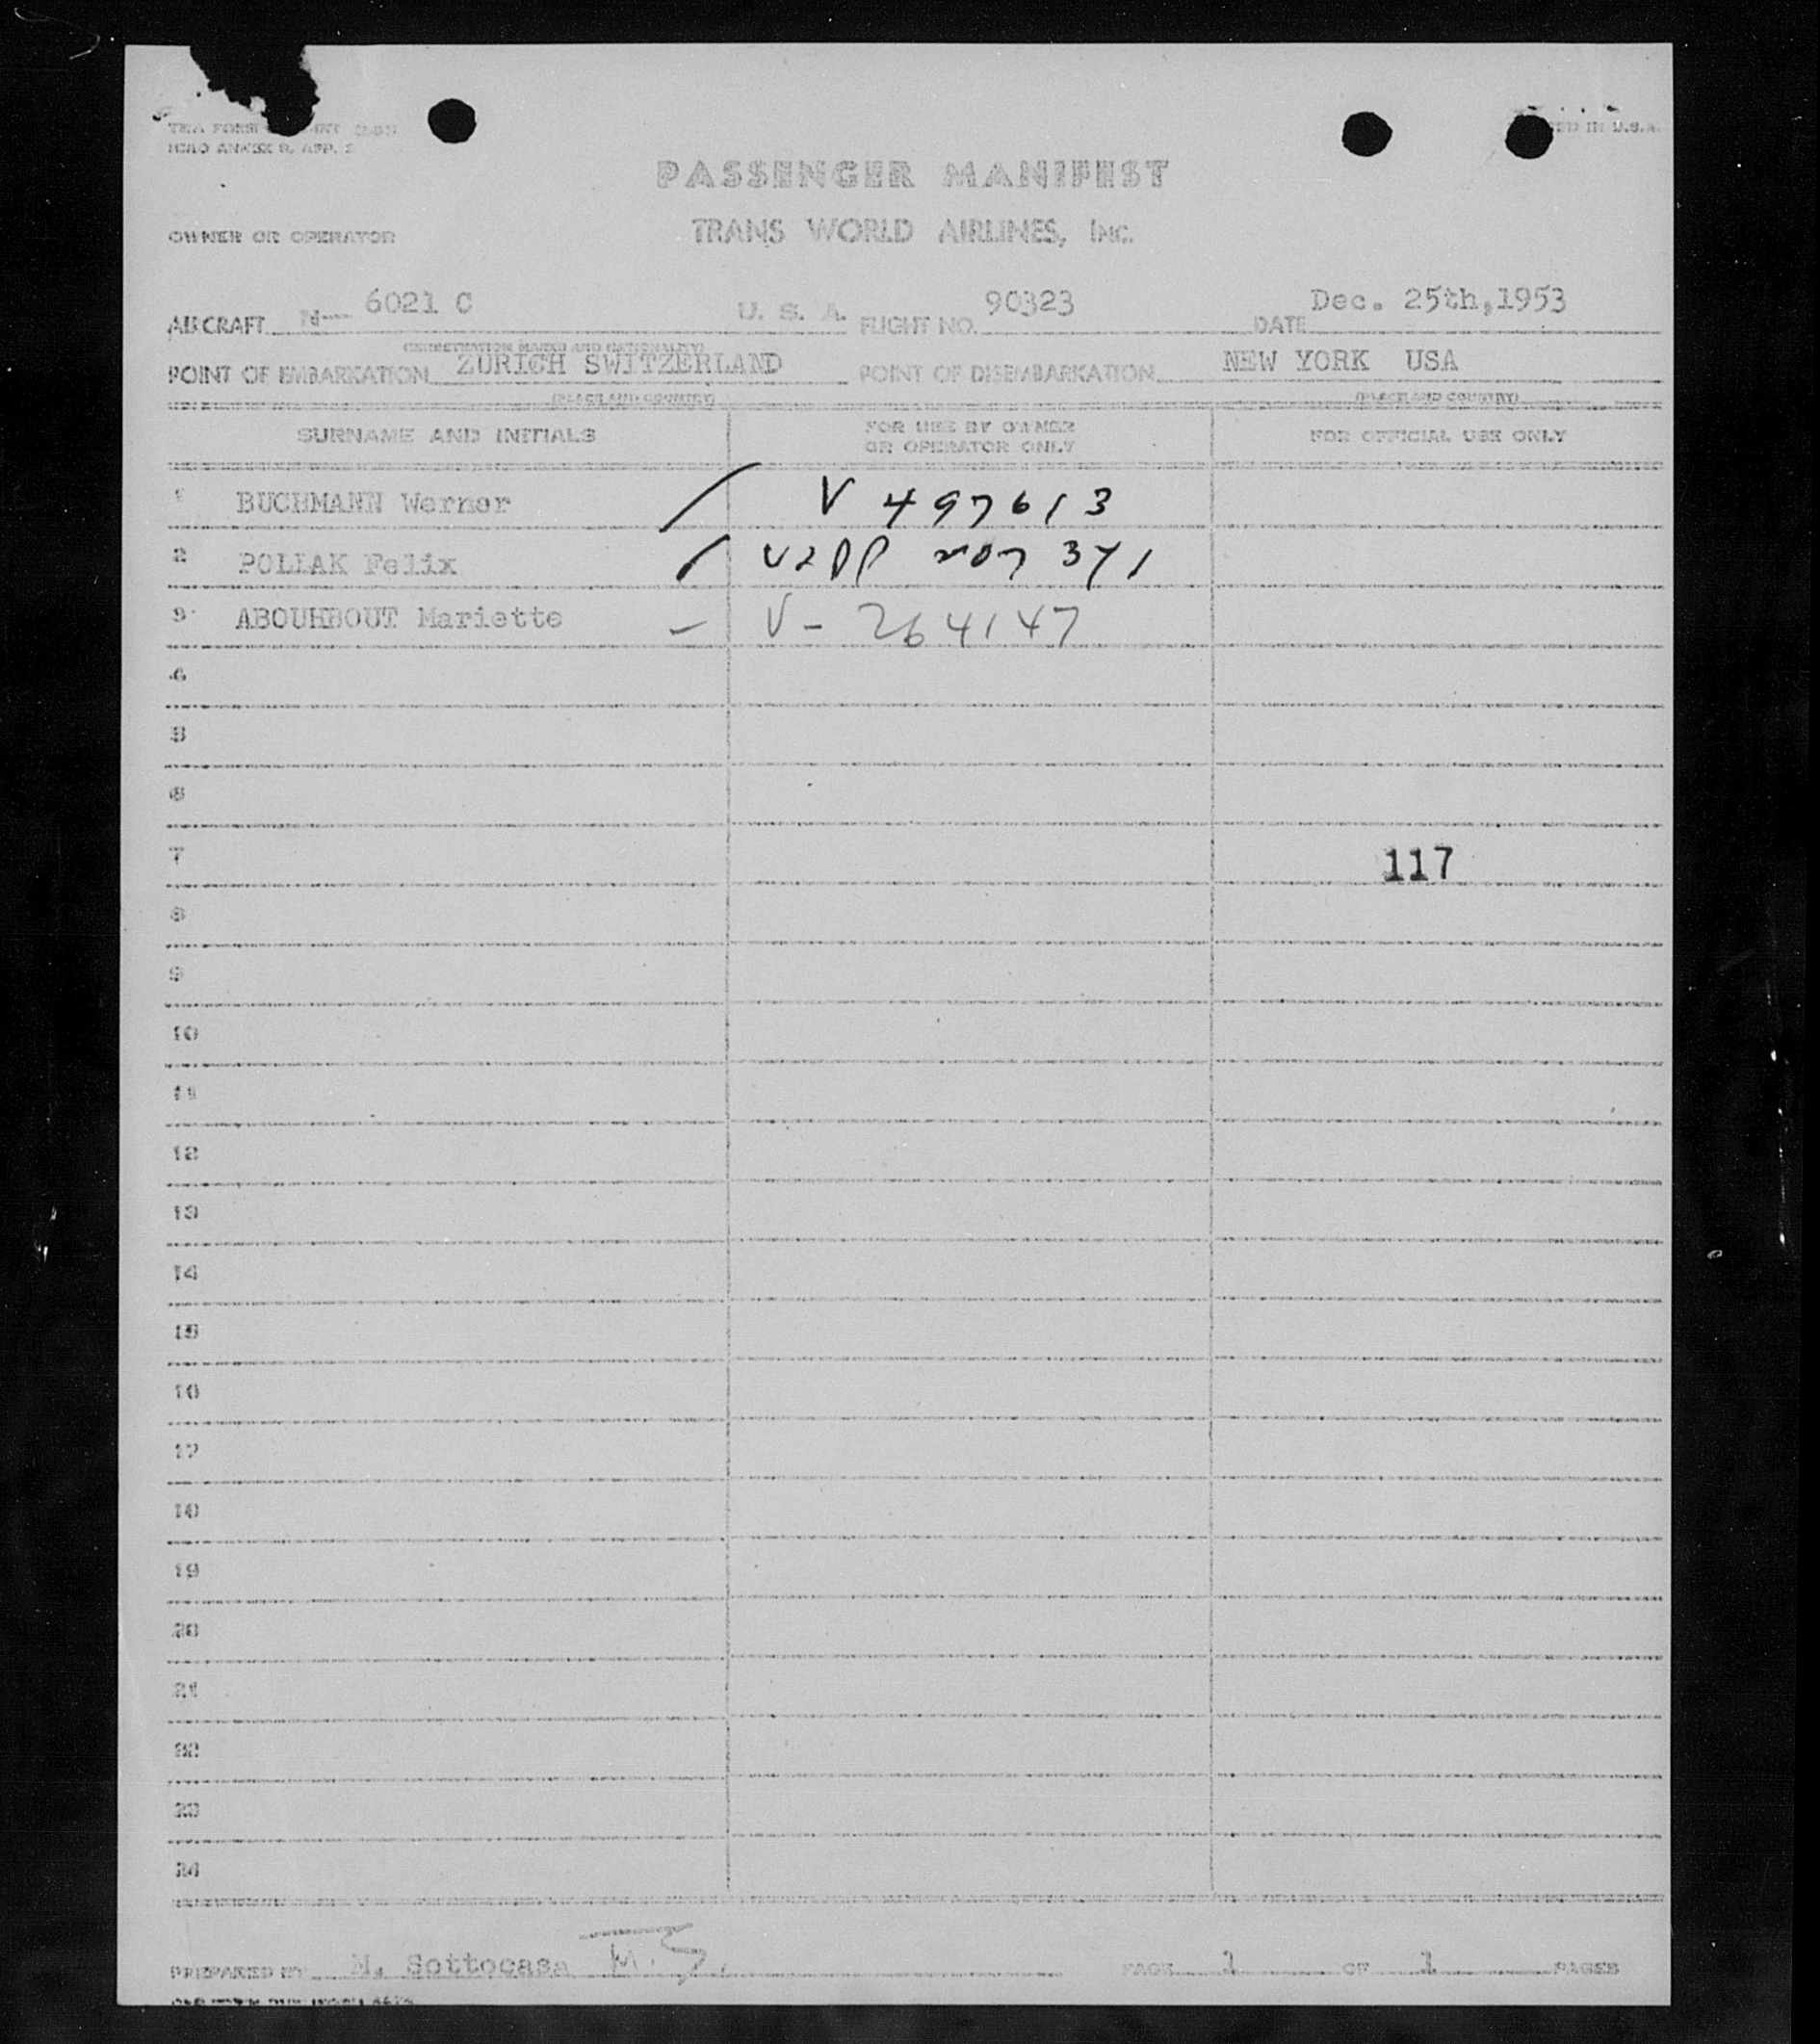 TWA FORM
ICAO ANNEX 9, APP. 2
IN U.S.A.
PASSENGER MANIFEST
OWNER OR OPERATOR TRANS WORLD AIRLINES, INC.
AIRCRAFT N— 6021 C U. S. A. FLIGHT NO. 90323 DATE Dec. 25th,1953
(REGISTRATION MARKS AND NATIONALITY)
POINT OF EMBARKATION ZURICH SWITZERLAND POINT OF DISEMBARKATION NEW YORK USA
(PLACE AND COUNTRY) (PLACE AND COUNTRY)
SURNAME AND INITIALS FOR USE BY OWNER OR OPERATOR ONLY FOR OFFICIAL USE ONLY
1 BUCHMANN Werner / V 497613
2 POLLAK Felix /
3 ABOUHBOUT Mariette – V- 264147
4
5
6
7 117
8
9
10
11
12
13
14
15
16
17
18
19
20
21
22
23
24
PREPARED BY M. Sottocasa M. S. PAGE 1 OF 1 PAGES